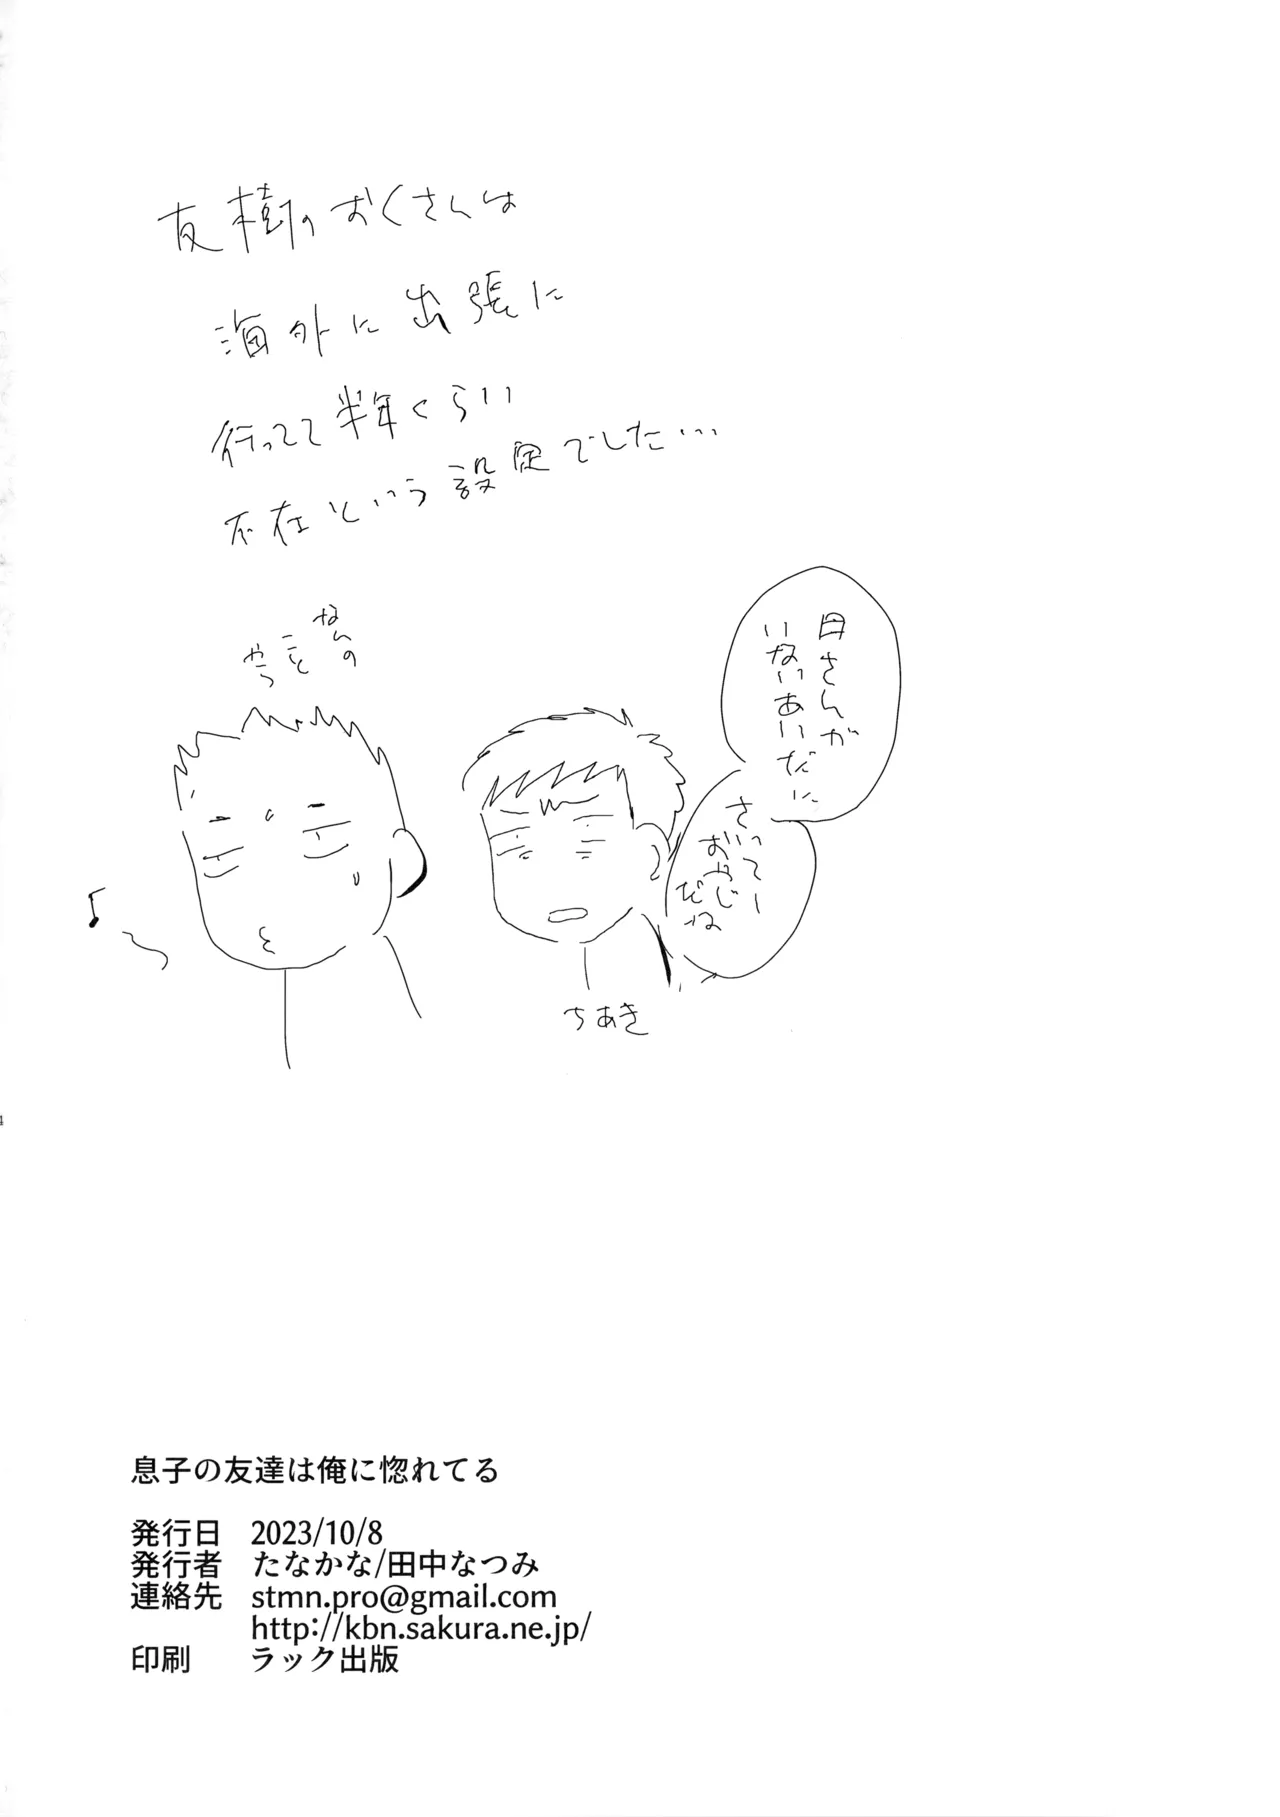 友樹のおくさんは
海外に出張に
行ってて半年くらい
不在という設定でした…
なんの
ことやら
母さんが
いないあいだに
さいってー
おやじ
だね
ちあき
息子の友達は俺に惚れてる
発行日 2023/10/8
発行者 たなかな/田中なつみ
連絡先 stmn.pro@gmail.com
http://kbn.sakura.ne.jp/
印刷 ラック出版